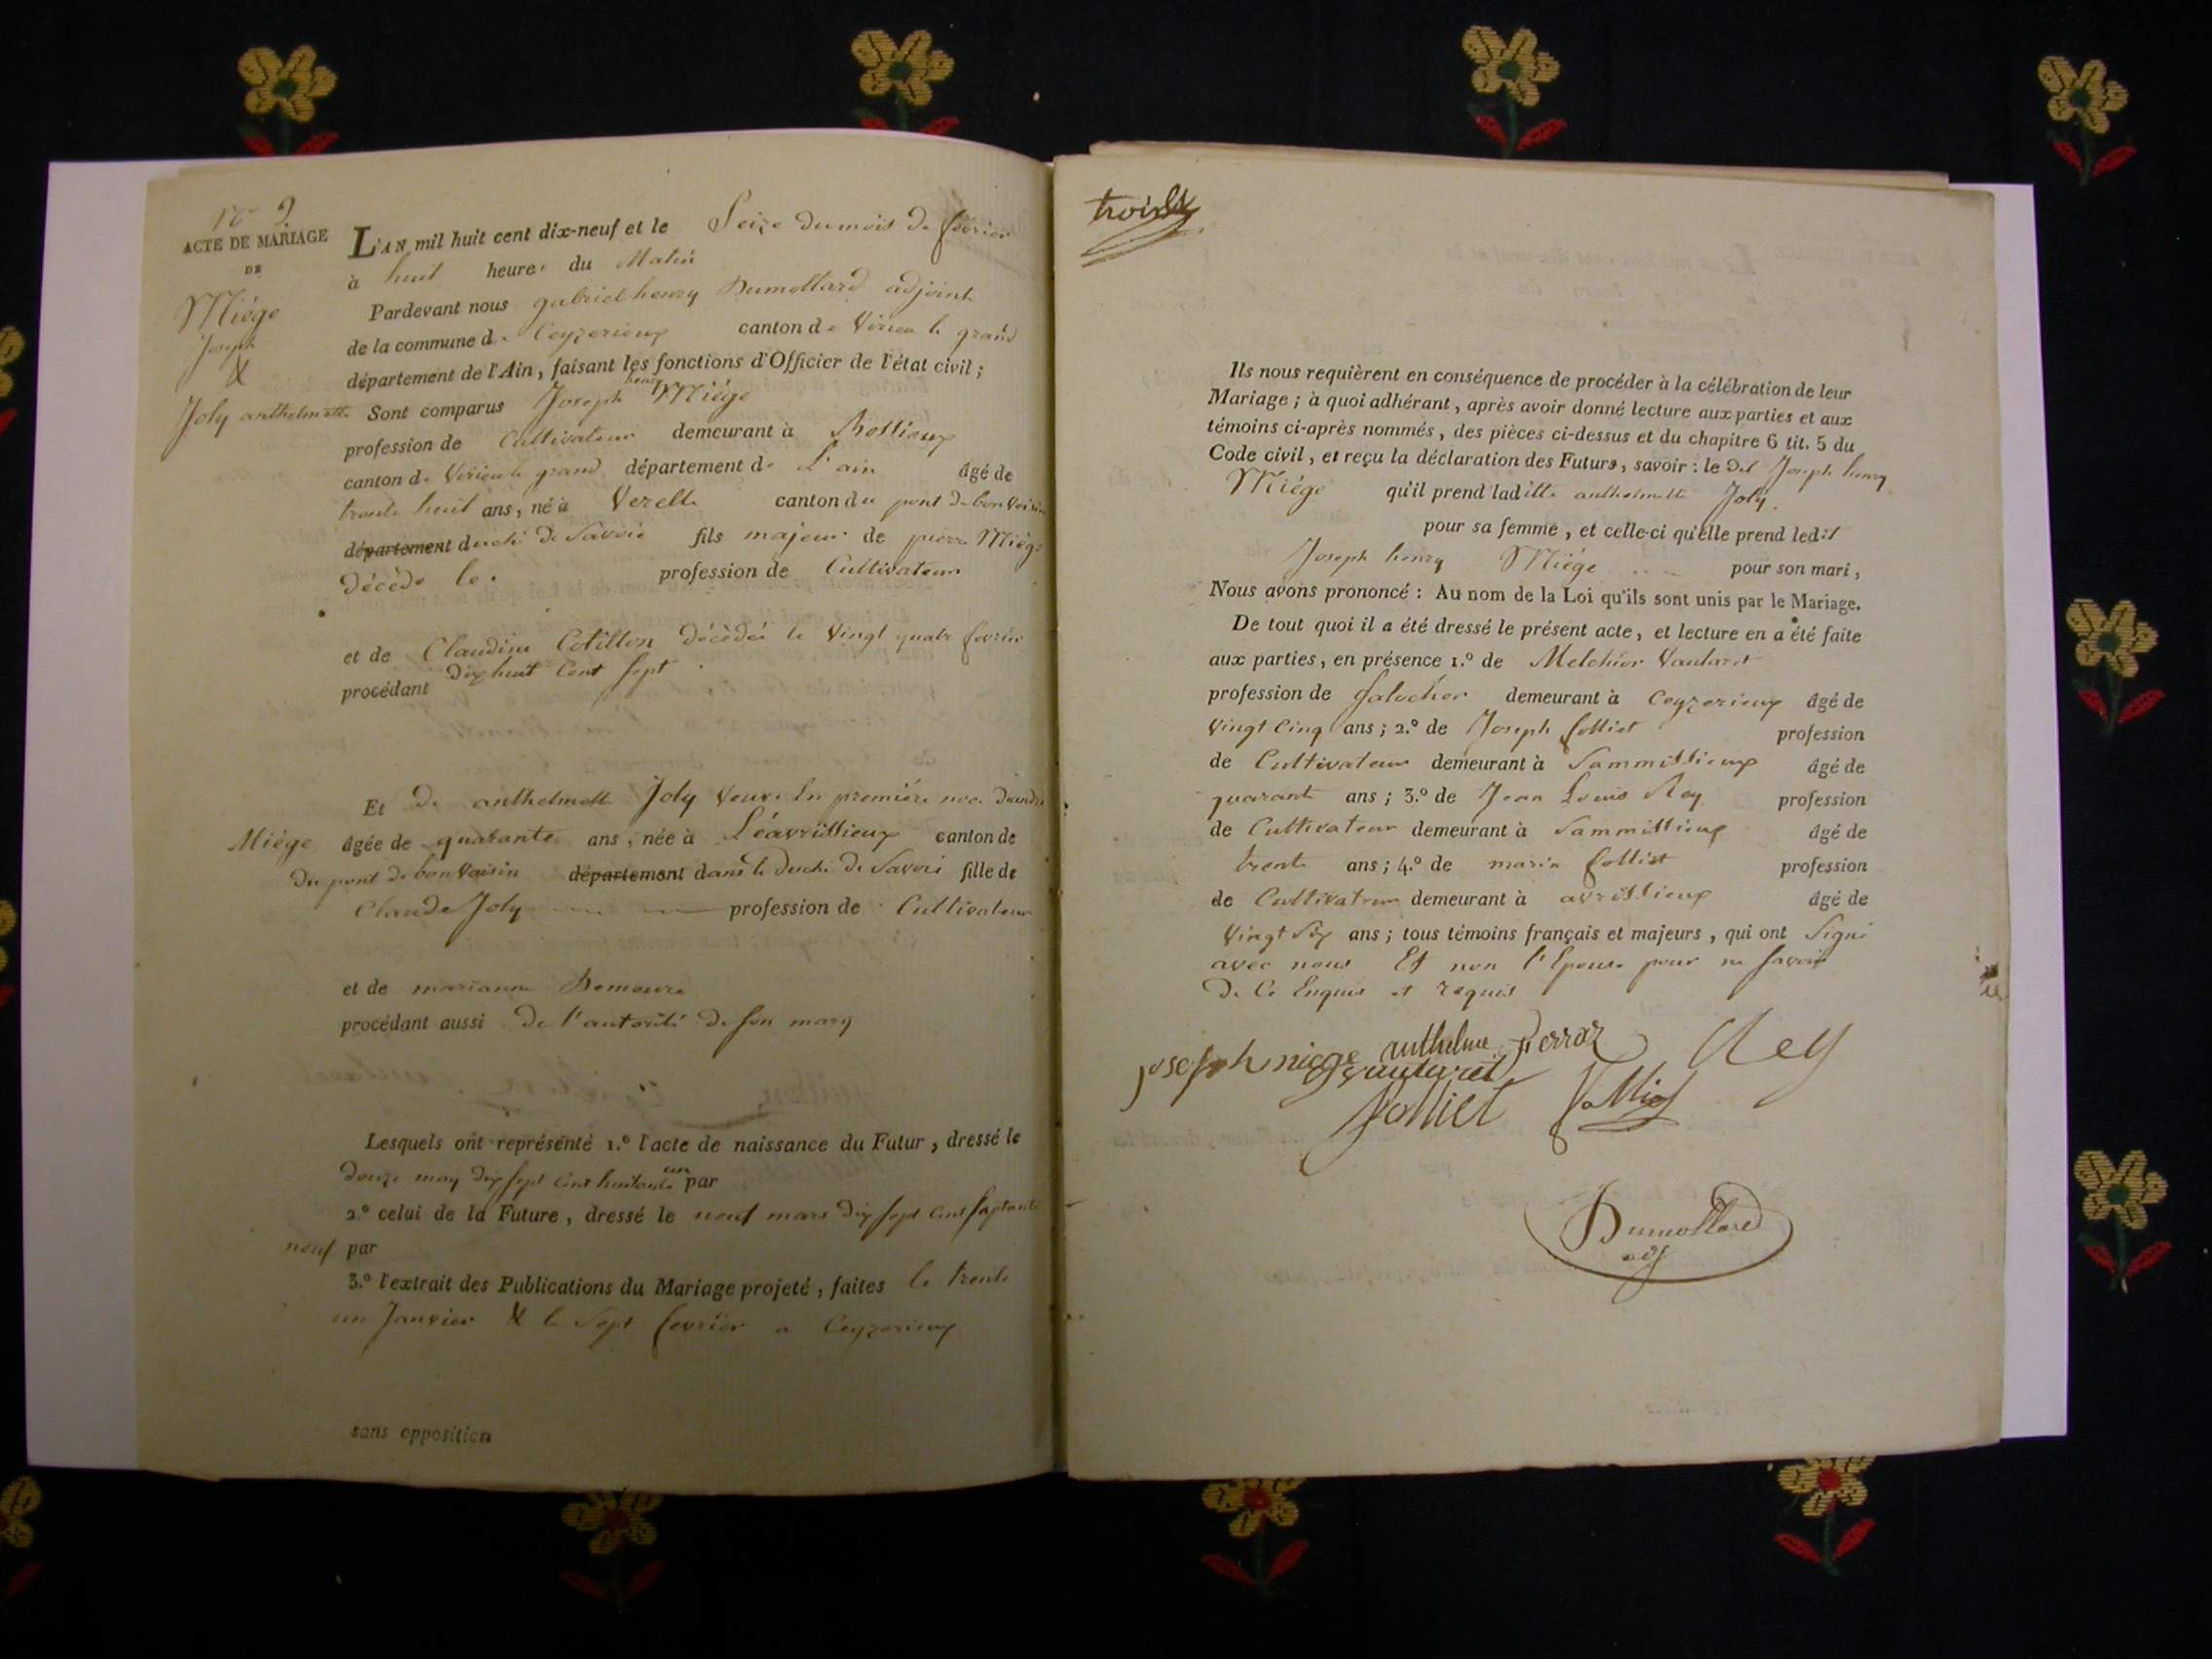 N° 2
ACTE DE MARIAGE
DE
Miége
Joseph
&
Joly anthelmette
L'AN mil huit cent dix-neuf et le Seize du mois de fevrier
à huit heure du Matin
Pardevant nous gabriel henry Dumollard adjoint
de la commune de Ceyzerieux canton de Virieu le grand
département de l'Ain, faisant les fonctions d'Officier de l'état civil;
Sont comparus Joseph henry Miége
profession de Cultivateur demeurant à
canton de Virieu le grand département de L'ain âgé de
trente huit ans, né à Verelle canton du pont de bonvoisin
département duché de Savoie fils majeur de pierre Miége
décédé le. profession de Cultivateur
et de Claudine Cotillon décédée le Vingt quatre fevrier
procédant dix huit Cent Sept.
Et de anthelmette Joly Veuve En première noce
Miége âgée de quarante ans, née à canton de
du pont de bon Vaisin département dans le duché de Savoie fille de
Claude Joly profession de Cultivateur
et de marianne Demeure
procédant aussi de l'autorité de son mary
Lesquels ont représenté 1.° l'acte de naissance du Futur, dressé le
douze may dix sept Cent huitante un par
2.° celui de la Future, dressé le neuf mars dix sept Cent septante
neuf par
3.° l'extrait des Publications du Mariage projeté, faites le trente
un Janvier & le Sept fevrier a Ceyzerieux
sans opposition
trois
Ils nous requièrent en conséquence de procéder à la célébration de leur
Mariage; à quoi adhérant, après avoir donné lecture aux parties et aux
témoins ci-après nommés, des pièces ci-dessus et du chapitre 6 tit. 5 du
Code civil, et reçu la déclaration des Futurs, savoir: le dit Joseph henry
Miége qu'il prend laditte anthelmette Joly.
pour sa femme, et celle-ci qu'elle prend ledit
Joseph henry Miége pour son mari,
Nous avons prononcé: Au nom de la Loi qu'ils sont unis par le Mariage.
De tout quoi il a été dressé le présent acte, et lecture en a été faite
aux parties, en présence 1.° de Melchior Vautaret
profession de Galocher demeurant à Ceyzerieux âgé de
Vingt Cinq ans; 2.° de Joseph folliet profession
de Cultivateur demeurant à Sammissieux âgé de
quarante ans; 3.° de Jean Louis Rey profession
de Cultivateur demeurant à Sammissieux âgé de
trente ans; 4.° de marin folliet profession
de Cultivateur demeurant à avrissieux âgé de
Vingt Six ans; tous témoins français et majeurs, qui ont Signé
avec nous Et non l'Epouse pour ne Savoir
de Ce Enquis et requis
joseph miege anthelme Perraz Rey
vautaret
folliet folliet
Dumollard
adj